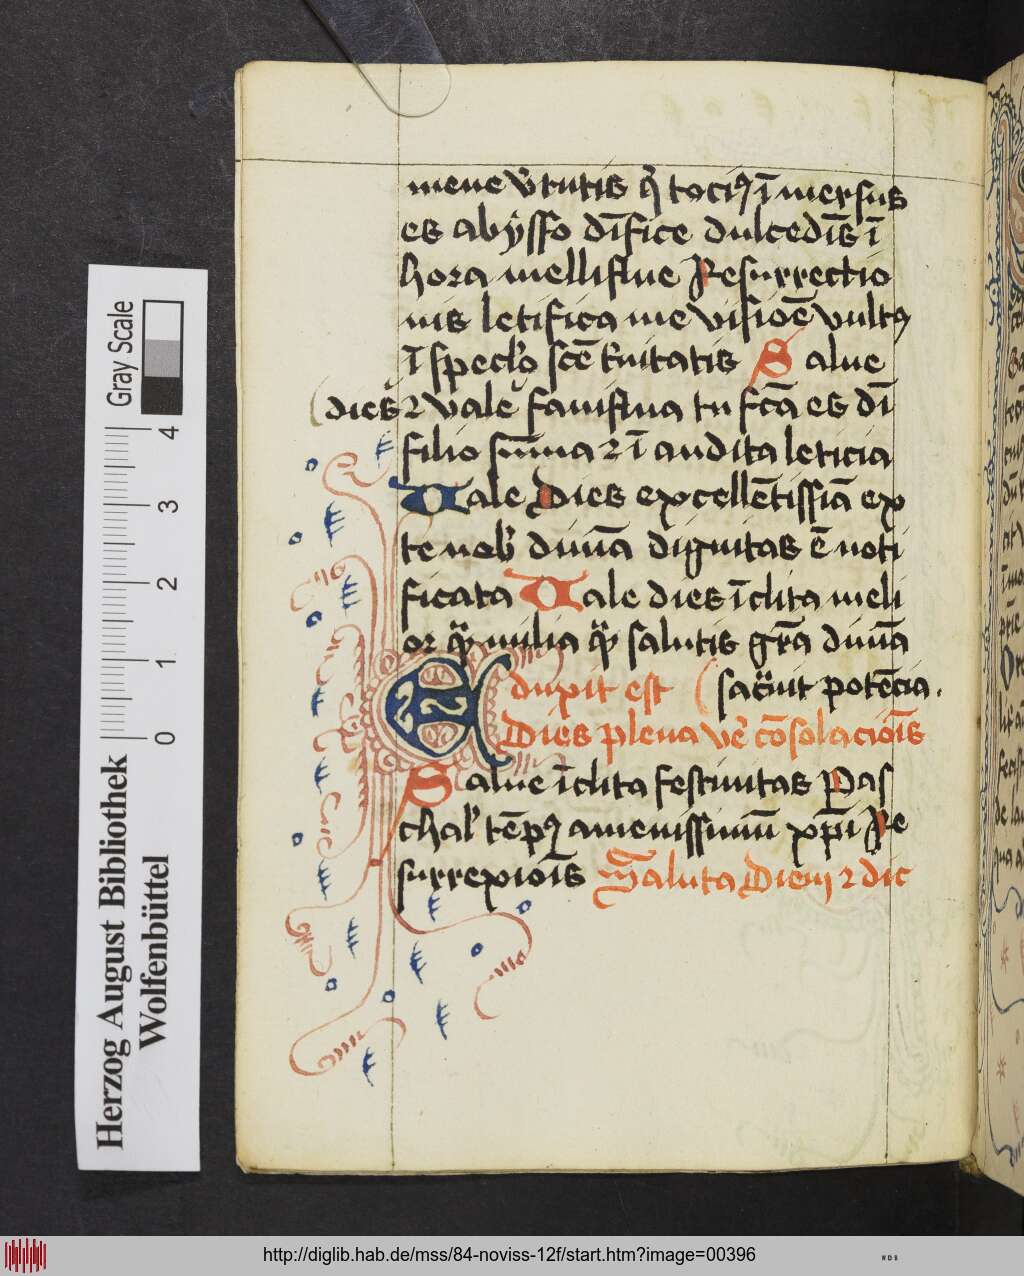 mene v̄tutis q̄ tociꝰ ī mersus
es abẏsso dīfice dulcedīs ī
hora melliflue Resurrectio
nis letifica me visiōe vultꝰ
ī specło scē t̄nitatis Salue
dies ⁊ vale fauiflua tu fc̄a es dī
filio sūma ⁊ ī audita leticia
Uale Dies excellētissīa ex
te nob̄ diuīa dignitas ē noti
ficata Uale dies īclita meli
or q̄ȝ milia q̄ȝ salutis gr̄a diuīa
Aduxit est sac̄uit potēcia.
Dies plena vē cōsolacioīs
Salue īclita festiuitas Pas
chal̄ tēpꝰ amenissimū xp̄i Re
surrexioīs Saluta Diem ⁊ dic
Herzog August Bibliothek
Wolfenbüttel
Gray Scale
0 1 2 3 4
http://diglib.hab.de/mss/84-noviss-12f/start.htm?image=00396